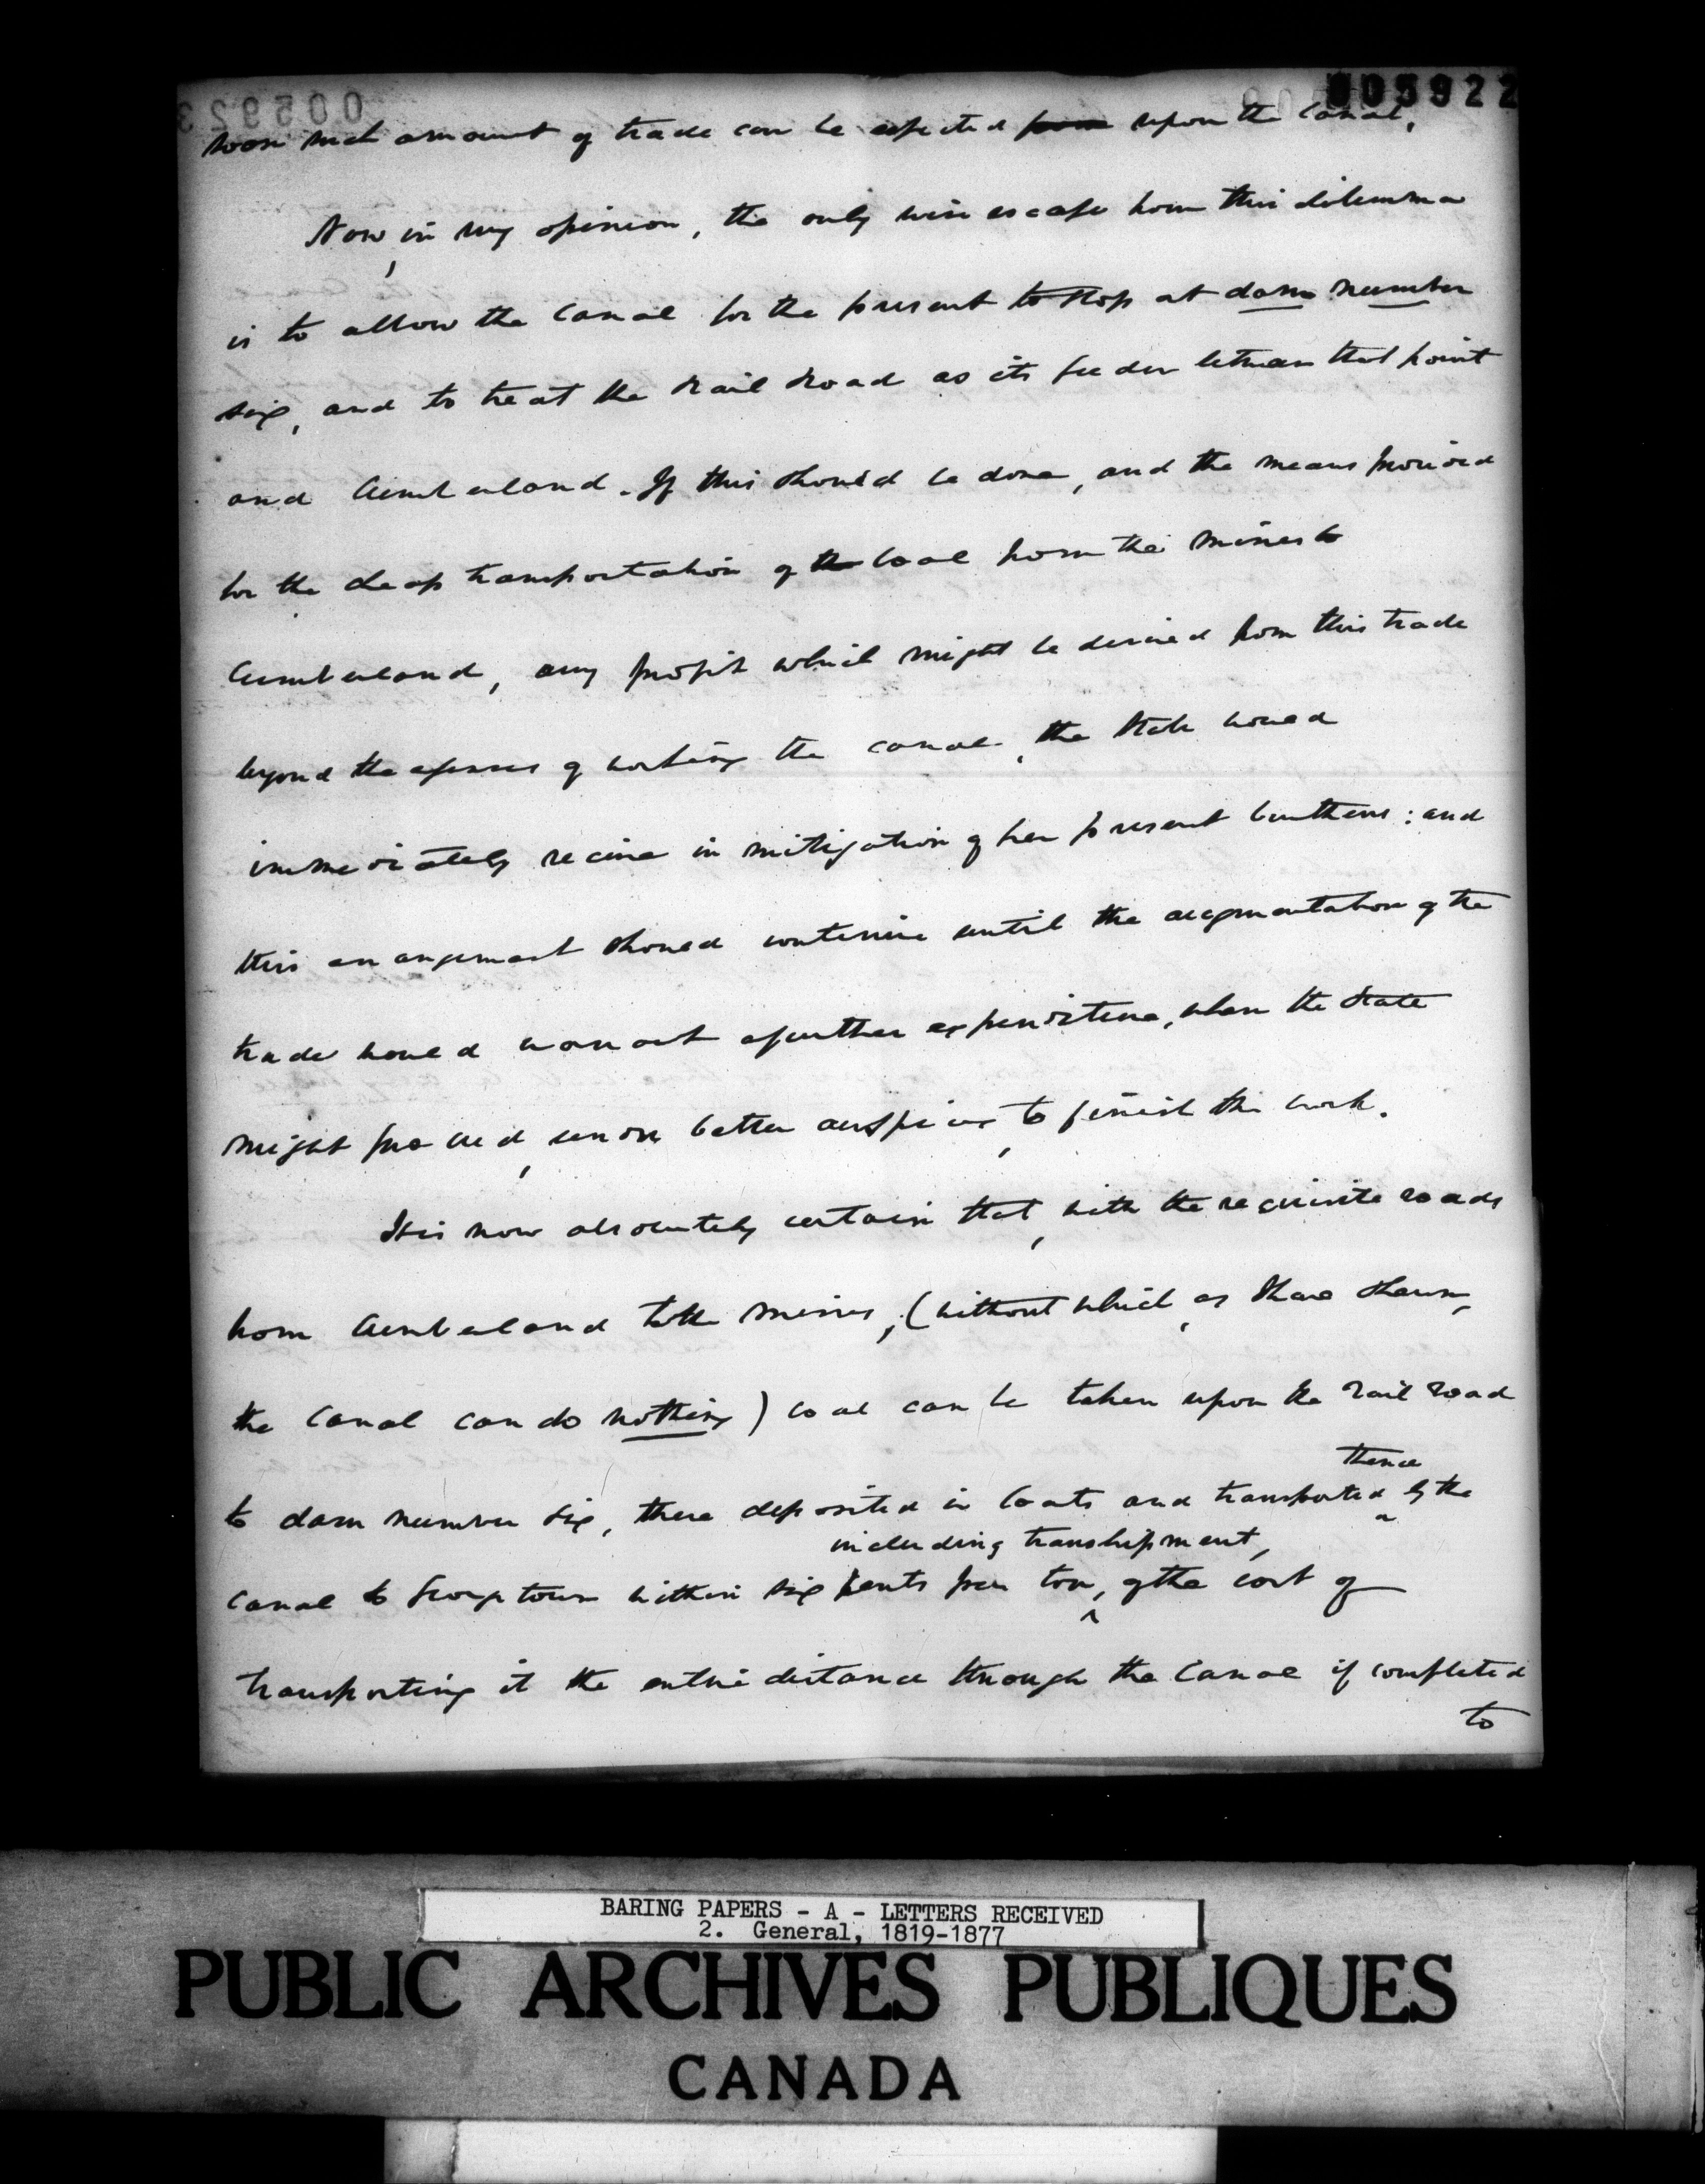 005922
soon such amount of trade can be expected from upon the Canal.
Now, in my opinion, the only wise escape from this dilemma
is to allow the Canal for the present to stop at dam number
six, and to treat the Rail Road as its feeder between that point
and Cumberland. If this should be done, and the means provided
for the cheap transportation of the Coal from the mines to
Cumberland, any profit which might be derived from this trade
beyond the expenses of working the canal, the State would
immediately receive in mitigation of her present burthens: and
this arrangement should continue until the augmentation of the
trade would warrant a further expenditure, when the State
might proceed, under better auspices, to finish the work.
It is now absolutely certain that, with the requisite roads
from Cumberland to the mines, (without which, as I have shown,
the Canal can do nothing) coal can be taken upon the rail road
thence
to dam number six, there deposited in boats and transported by the
including transhipment,
canal to Georgetown within six cents per ton, of the cost of
transporting it the entire distance through the Canal if completed
to
BARING PAPERS - A - LETTERS RECEIVED
2. General, 1819-1877
PUBLIC ARCHIVES PUBLIQUES
CANADA